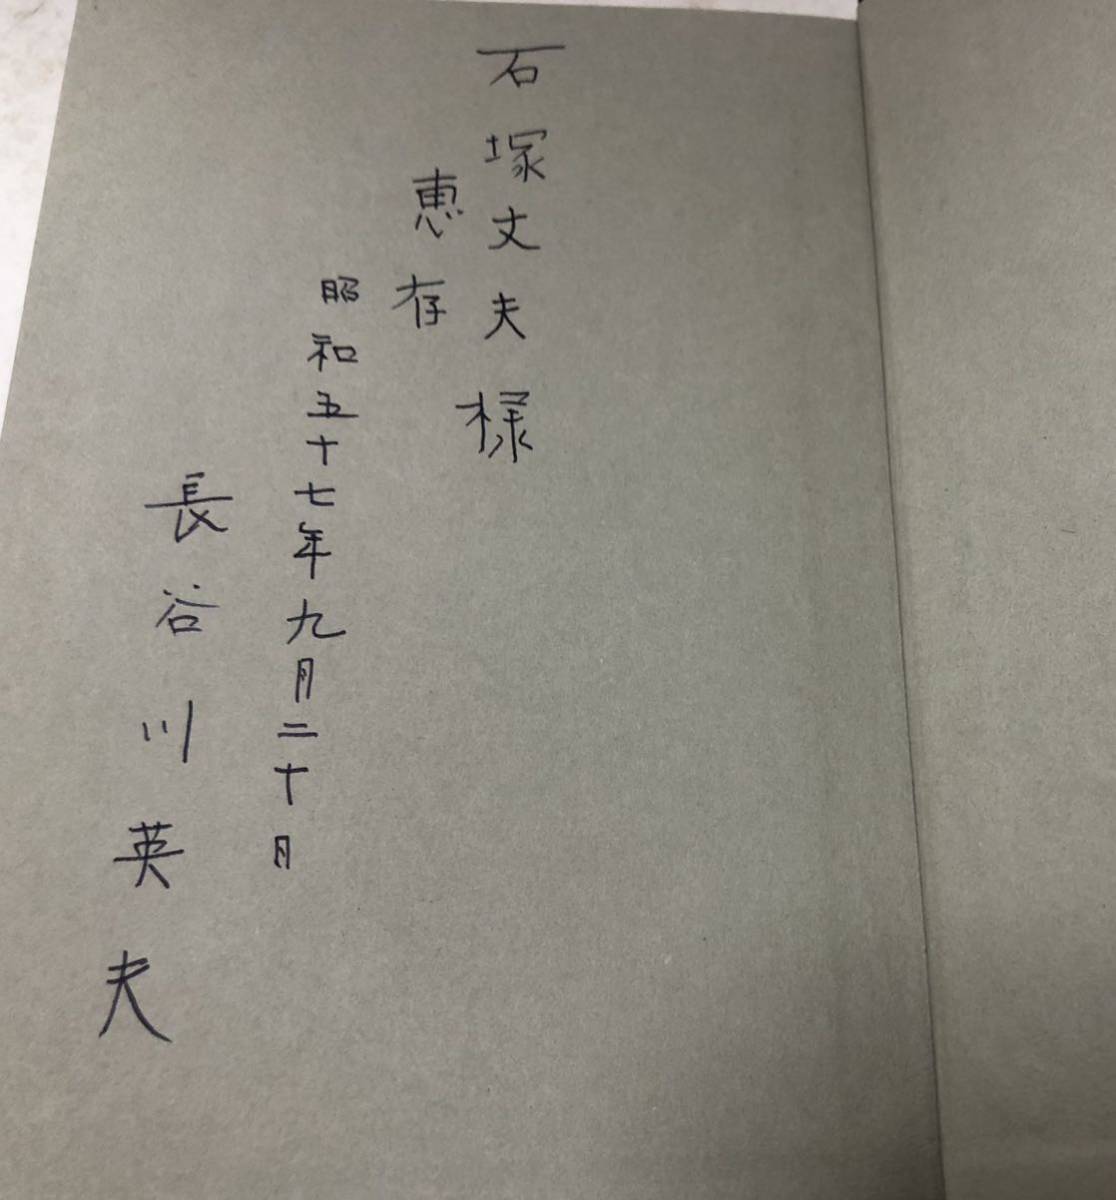 石塚丈夫様
恵存
昭和五十七年九月二十日
長谷川英夫